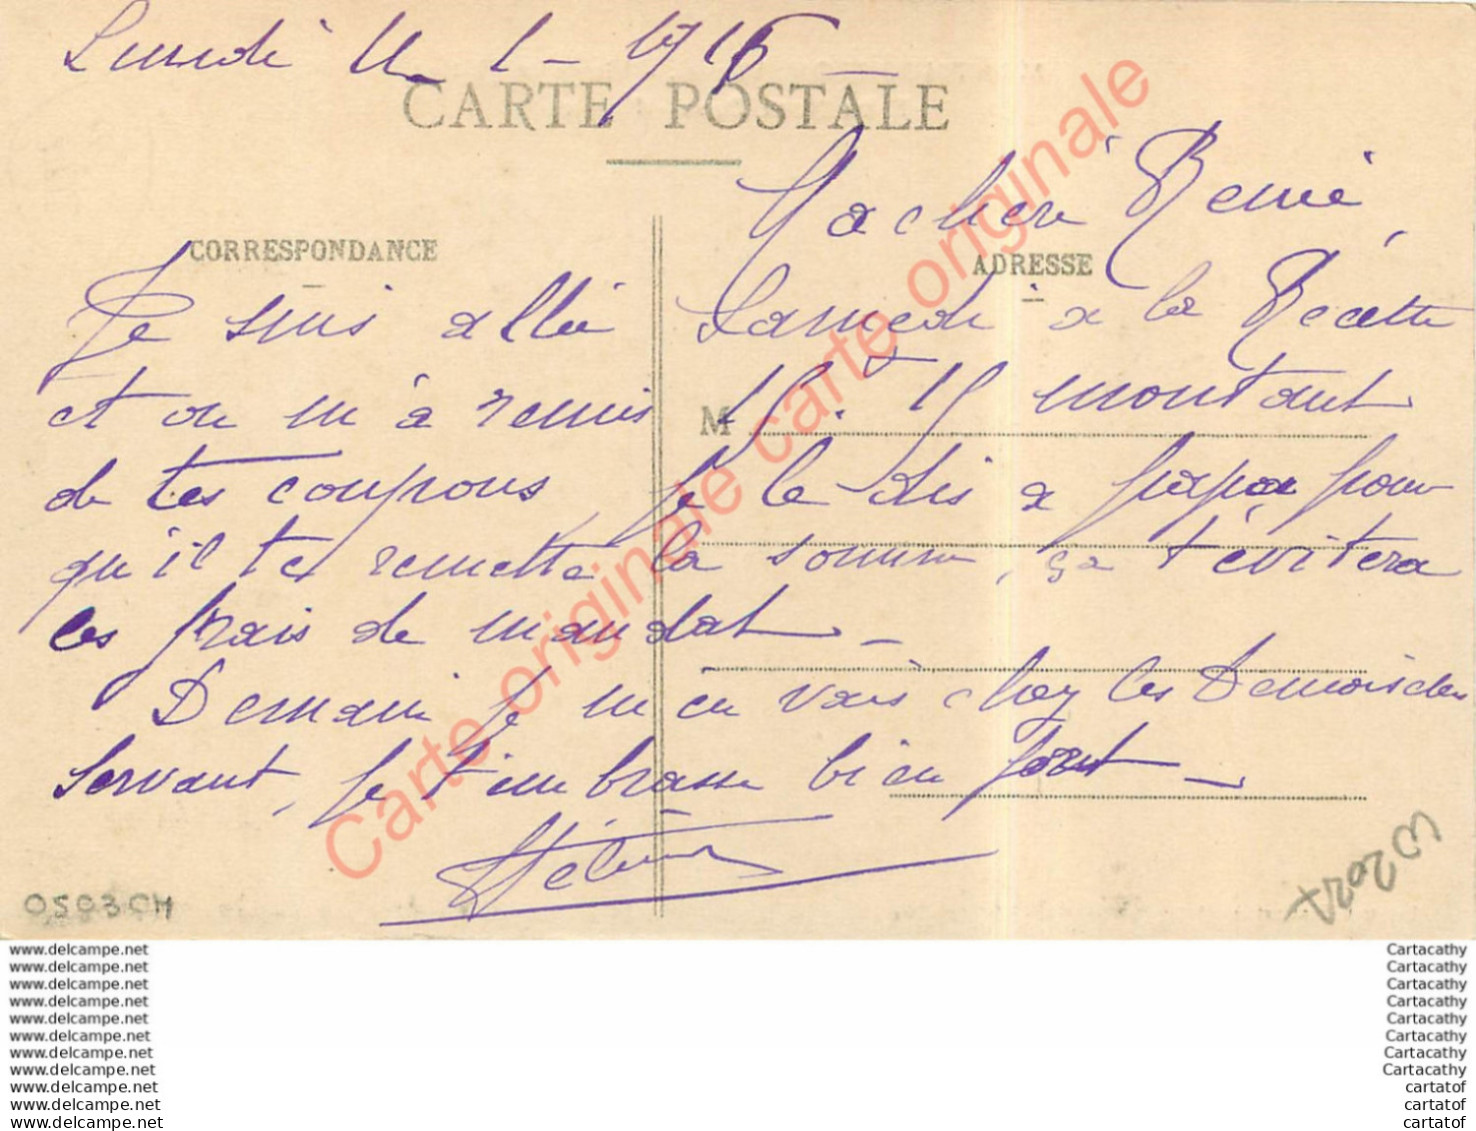 Lundi 11 - 1 - 1915
CARTE POSTALE
Ma chère Renée,
CORRESPONDANCE
ADRESSE
Je suis allée Samedi à la Recette
et on m'à remis 15f. 15 montant
M
de tes coupons, je le dis a papa pour
qu'il te remette la somme, ça t'évitera
les frais de mandat. -
Demain je m'en vais chez les Demoiselles
Servant, je t'embrasse bien fort -
Hélène
0503CH
Carte originale carte originale
www.delcampe.net Cartacathy
www.delcampe.net Cartacathy
www.delcampe.net Cartacathy
www.delcampe.net Cartacathy
www.delcampe.net Cartacathy
www.delcampe.net Cartacathy
www.delcampe.net Cartacathy
www.delcampe.net Cartacathy
www.delcampe.net cartatof
www.delcampe.net cartatof
www.delcampe.net cartatof